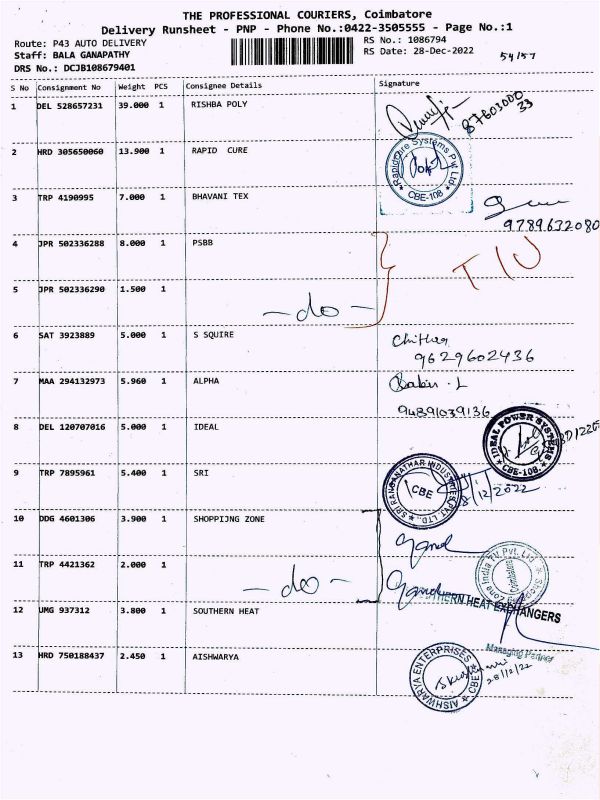 THE PROFESSIONAL COURIERS, Coimbatore
Delivery Runsheet - PNP - Phone No.:0422-3505555 - Page No.:1
Route: P43 AUTO DELIVERY
RS No.: 1086794
Staff: BALA GANAPATHY
RS Date: 28-Dec-2022
54/57
DRS No.: DCJB108679401
S No Consignment No Weight PCS Consignee Details Signature
1 DEL 528657231 39.000 1 RISHBA POLY
8760300033
2 HRD 305650060 13.900 1 RAPID CURE
Rapidcure Systems Pvt Ltd
CBE-108
3 TRP 4190995 7.000 1 BHAVANI TEX
9789632080
4 JPR 502336288 8.000 1 PSBB
5 JPR 502336290 1.500 1
- do -
6 SAT 3923889 5.000 1 S SQUIRE
Chithra
9629602436
7 MAA 294132973 5.960 1 ALPHA
94891039136
8 DEL 120707016 5.000 1 IDEAL
IDEAL POWER SYSTEMS
CBE-108.
9 TRP 7895961 5.400 1 SRI
SRI RANGANATHAR INDUSTRIES PVT. LTD.,
CBE
8/12/2022
10 DDG 4601306 3.900 1 SHOPPIJNG ZONE
Zone India TV Pvt. Ltd
Coimbatore
11 TRP 4421362 2.000 1
- do -
12 UMG 937312 3.800 1 SOUTHERN HEAT
SOUTHERN HEAT EXCHANGERS
Managing Partner
13 HRD 750188437 2.450 1 AISHWARYA
AISHWARYA ENTERPRISES
CBE
28/12/22